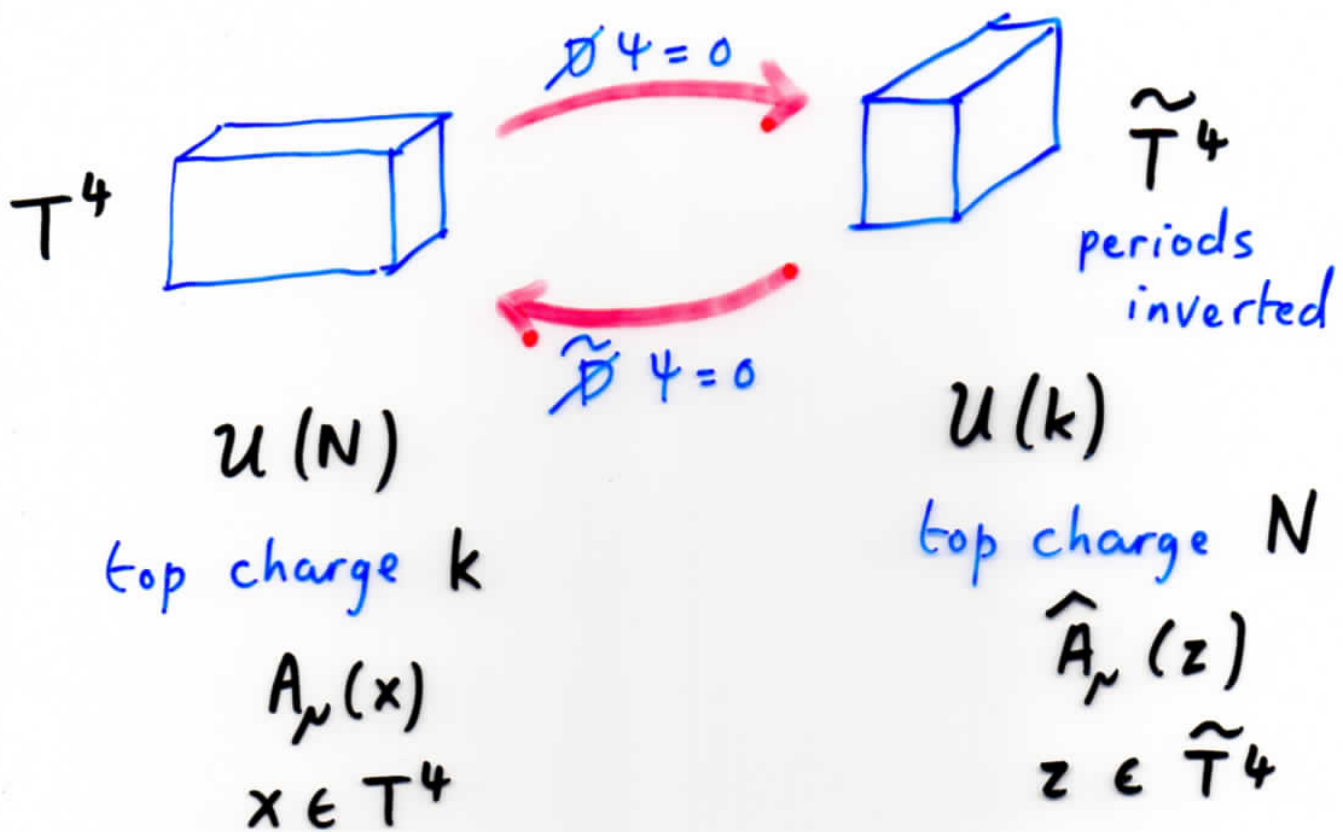 D̸ Ψ = 0
T⁴
T̃⁴
periods
inverted
D̸̃ Ψ = 0
U(N)
top charge k
A_μ(x)
x ∈ T⁴
U(k)
top charge N
Â_μ(z)
z ∈ T̃⁴